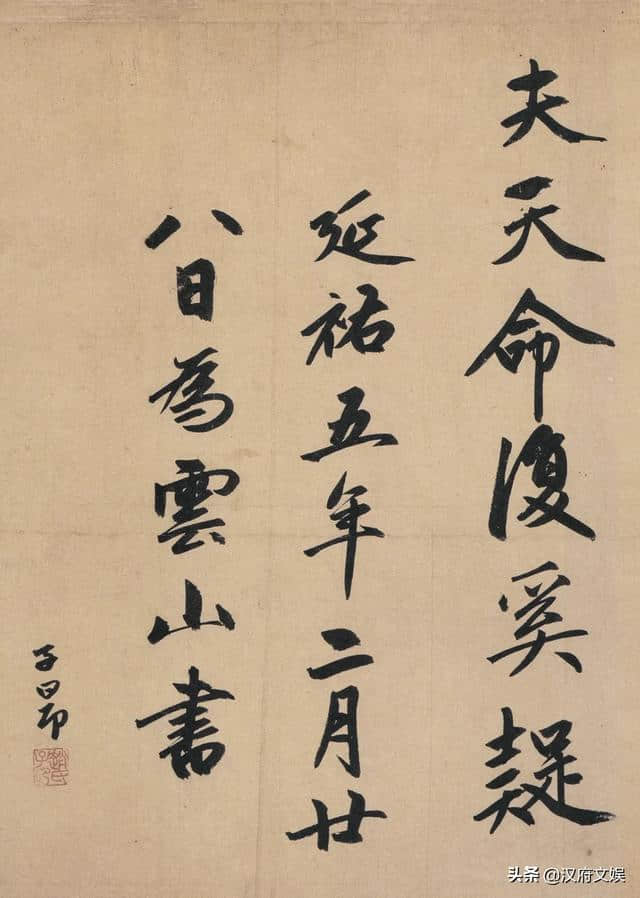 夫天命復奚疑
延祐五年二月廿
八日為雲山書
子昂
趙氏子昂
头条 @汉府文娱